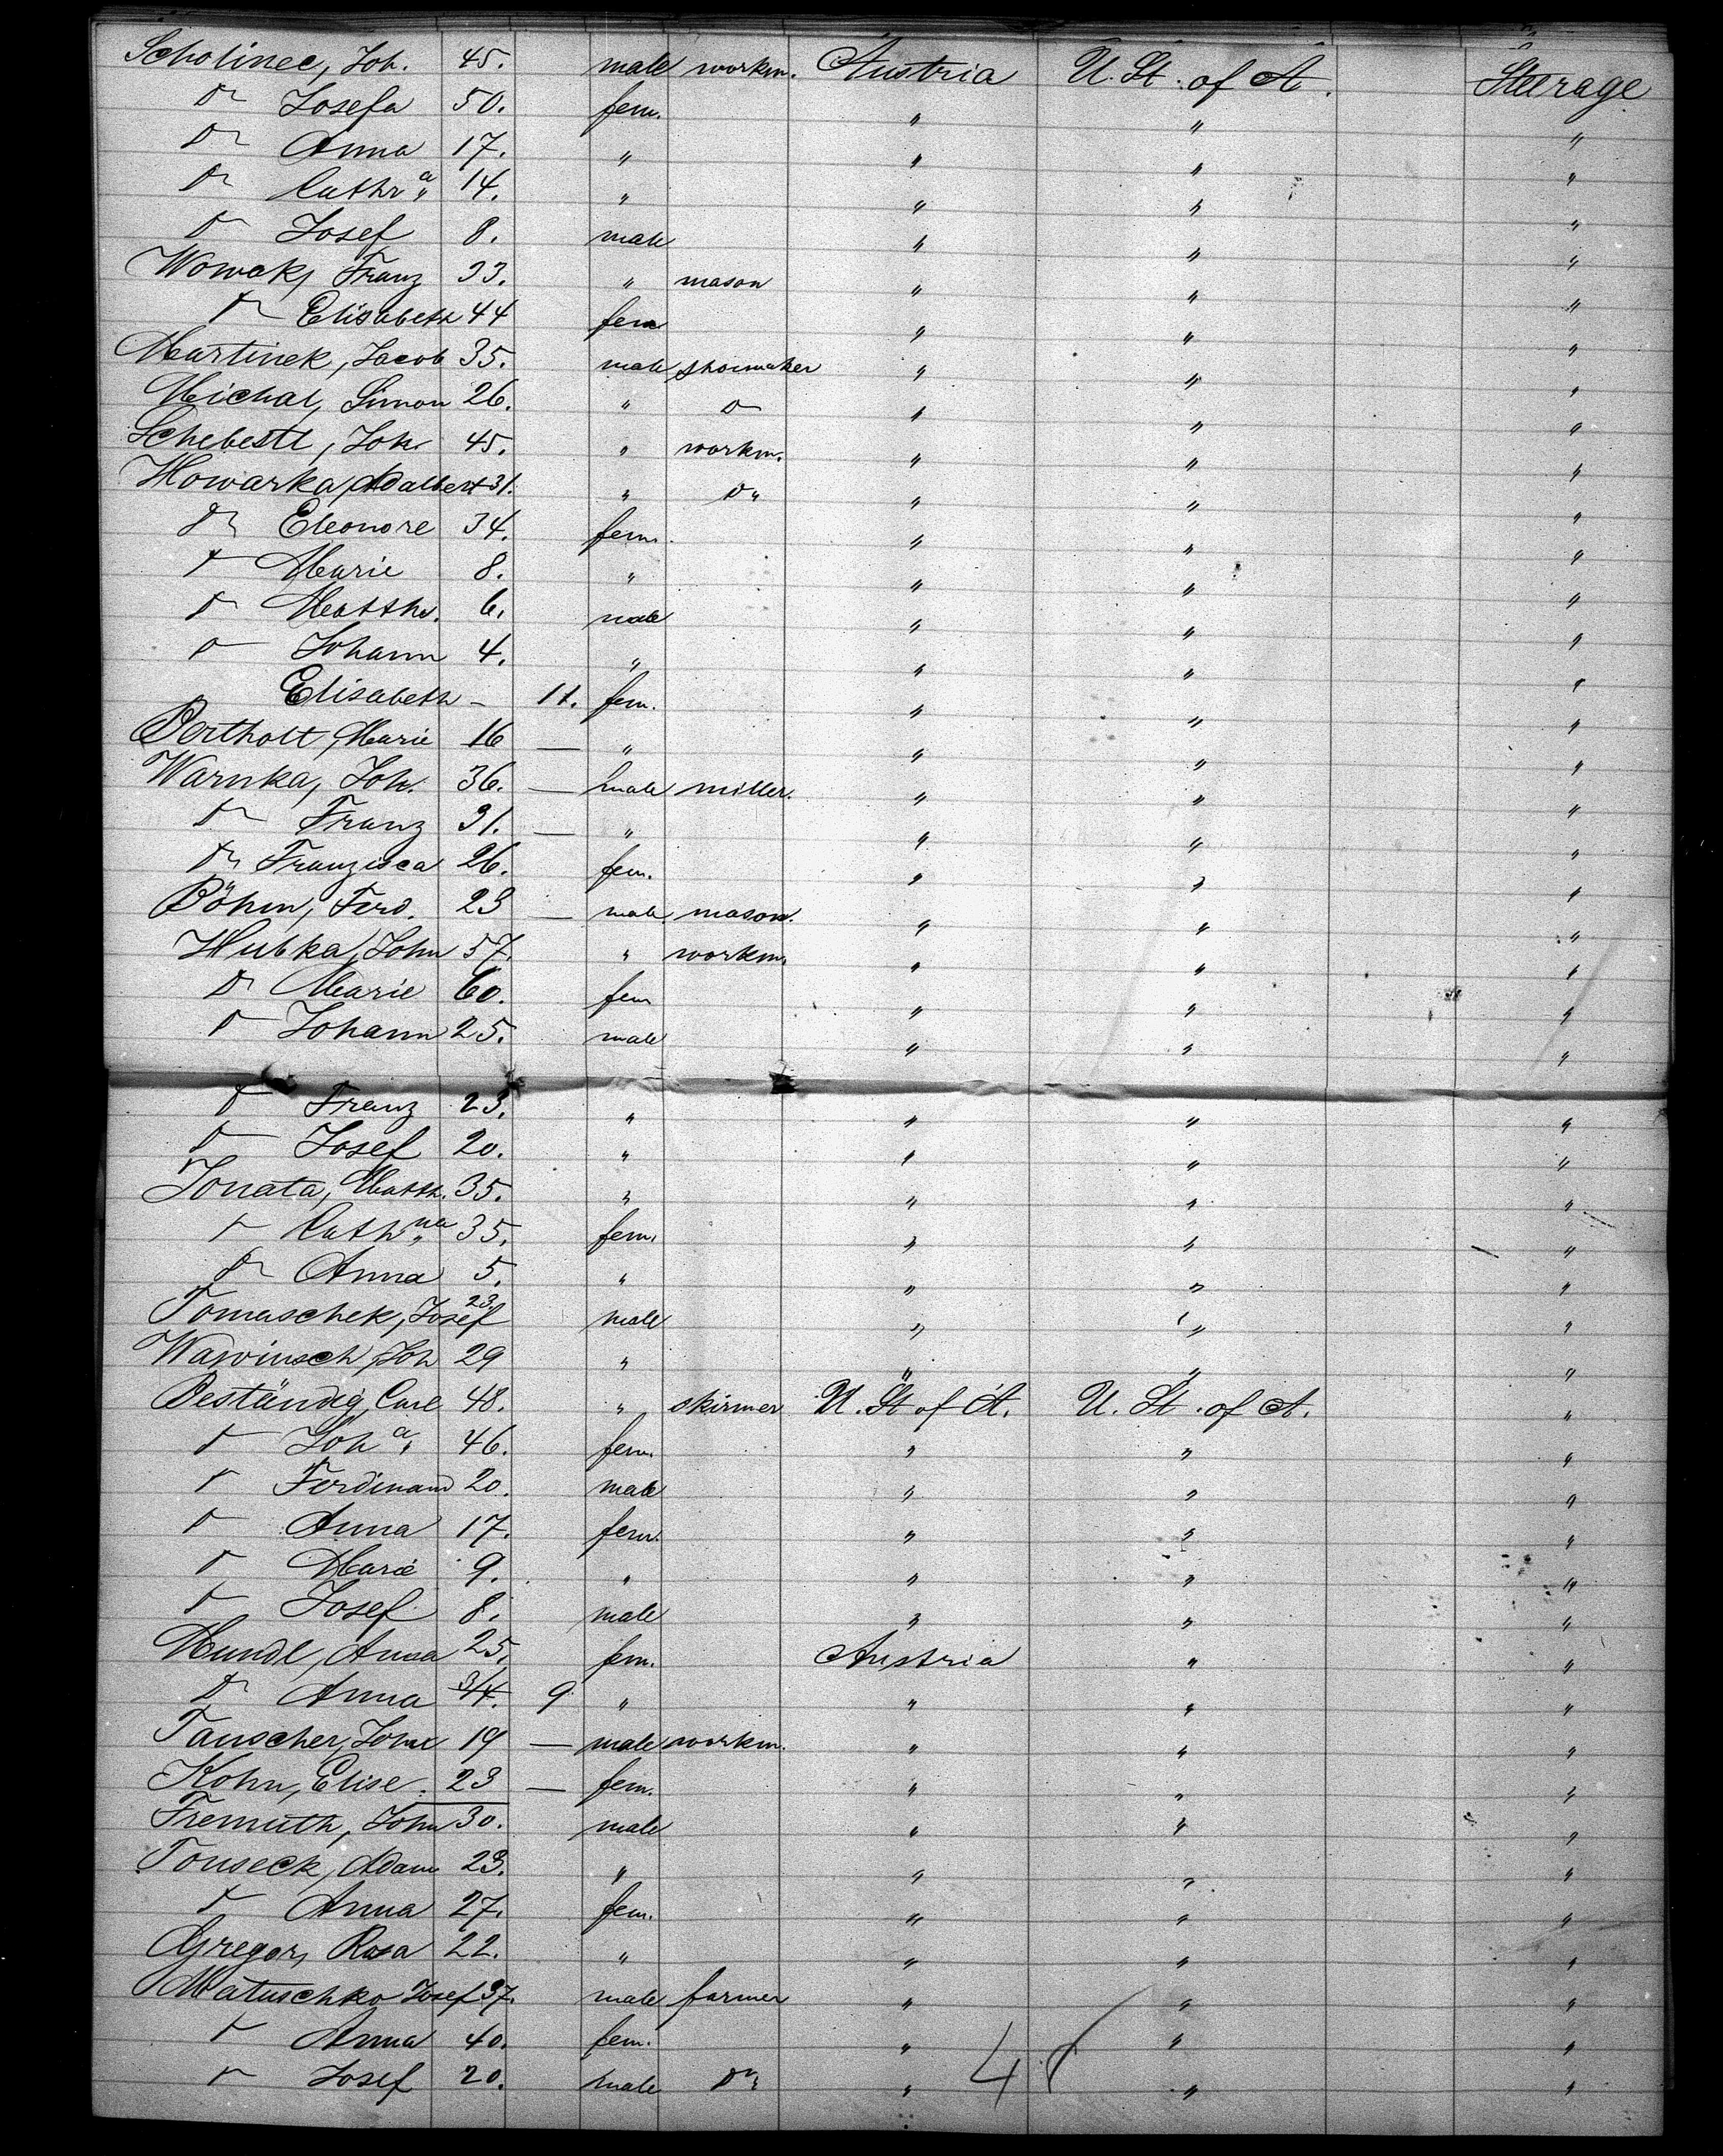 Scholinec, Joh. 45. male workm. Austria U. St. of A. Steerage
do Josefa 50. fem. " " "
do Anna 17. " " " "
do Cathr a. 14. " " " "
do Josef 8. male " " "
Wowak, Franz 33. " mason " " "
do Elisabeth 44 fem " " "
Martinek, Jacob 35. male shoemaker " " "
Michal, Simon 26. " do " " "
Schebestl, Joh. 45. " workm. " " "
Howarka, Adalbert 31. " do " " "
do Eleonore 34. fem. " " "
do Marie 8. " " " "
do Matths. 6. male " " "
do Johann 4. " " " "
Elisabeth - 11. fem. " " "
Bertholt, Marie 16 — " " " "
Warnka, Joh. 36. — male miller. " " "
do Franz 31. — " " " "
do Franzisca 26. fem. " " "
Böhm, Ferd. 23 — male mason. " " "
Hubka, John 57. " workm. " " "
do Marie 60. fem " " "
do Johann 25. male " " "
do Franz 23. " " " "
do Josef 20. " " " "
Jonata, Matth. 35. " " " "
do Cath na. 35. fem. " " "
do Anna 5. " " " "
Tomaschek, Josef 23. male " " "
Wawinsch, Joh 29 " " " "
Beständig, Carl 48. " skinner U. St of A. U. St. of A. "
do Joh a. 46. fem. " " "
do Ferdinand 20. male " " "
do Anna 17. fem. " " "
do Marie 9. " " " "
do Josef 8. male " " "
Mundl, Anna 25. fem. Austria " "
do Anna 3/4. 9 " " " "
Tauscher, John 19 — male workm. " " "
Kohn, Elise. 23 — fem. " " "
Fremuth, John 30. male " " "
Touseck, Adam 23. " " " "
do Anna 27. fem. " " "
Gregor, Rosa 22. " " " "
Matuschko Josef 37. male farmer " " "
do Anna 40. fem. " " "
do Josef 20. male do " " "
48